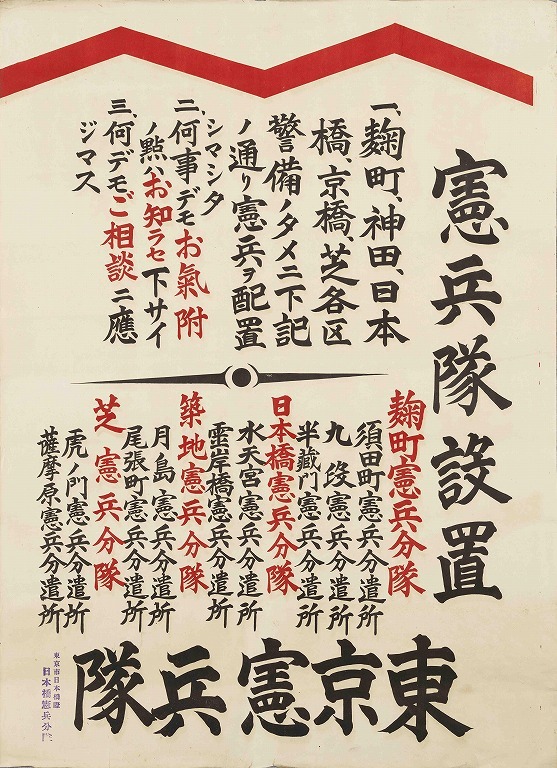 憲兵隊設置
一、麴町、神田、日本
橋、京橋、芝各区
警備ノタメニ下記
ノ通り憲兵ヲ配置
シマシタ
二、何事デモお氣附
ノ點ハお知ラセ下サイ
三、何デモご相談ニ應
ジマス
麴町憲兵分隊
須田町憲兵分遣所
九段憲兵分遣所
半藏門憲兵分遣所
日本橋憲兵分隊
水天宮憲兵分遣所
霊岸橋憲兵分遣所
築地憲兵分隊
月島憲兵分遣所
尾張町憲兵分遣所
芝憲兵分隊
虎ノ門憲兵分遣所
薩摩原憲兵分遣所
東京憲兵隊
東京市日本橋區
日本橋憲兵分隊